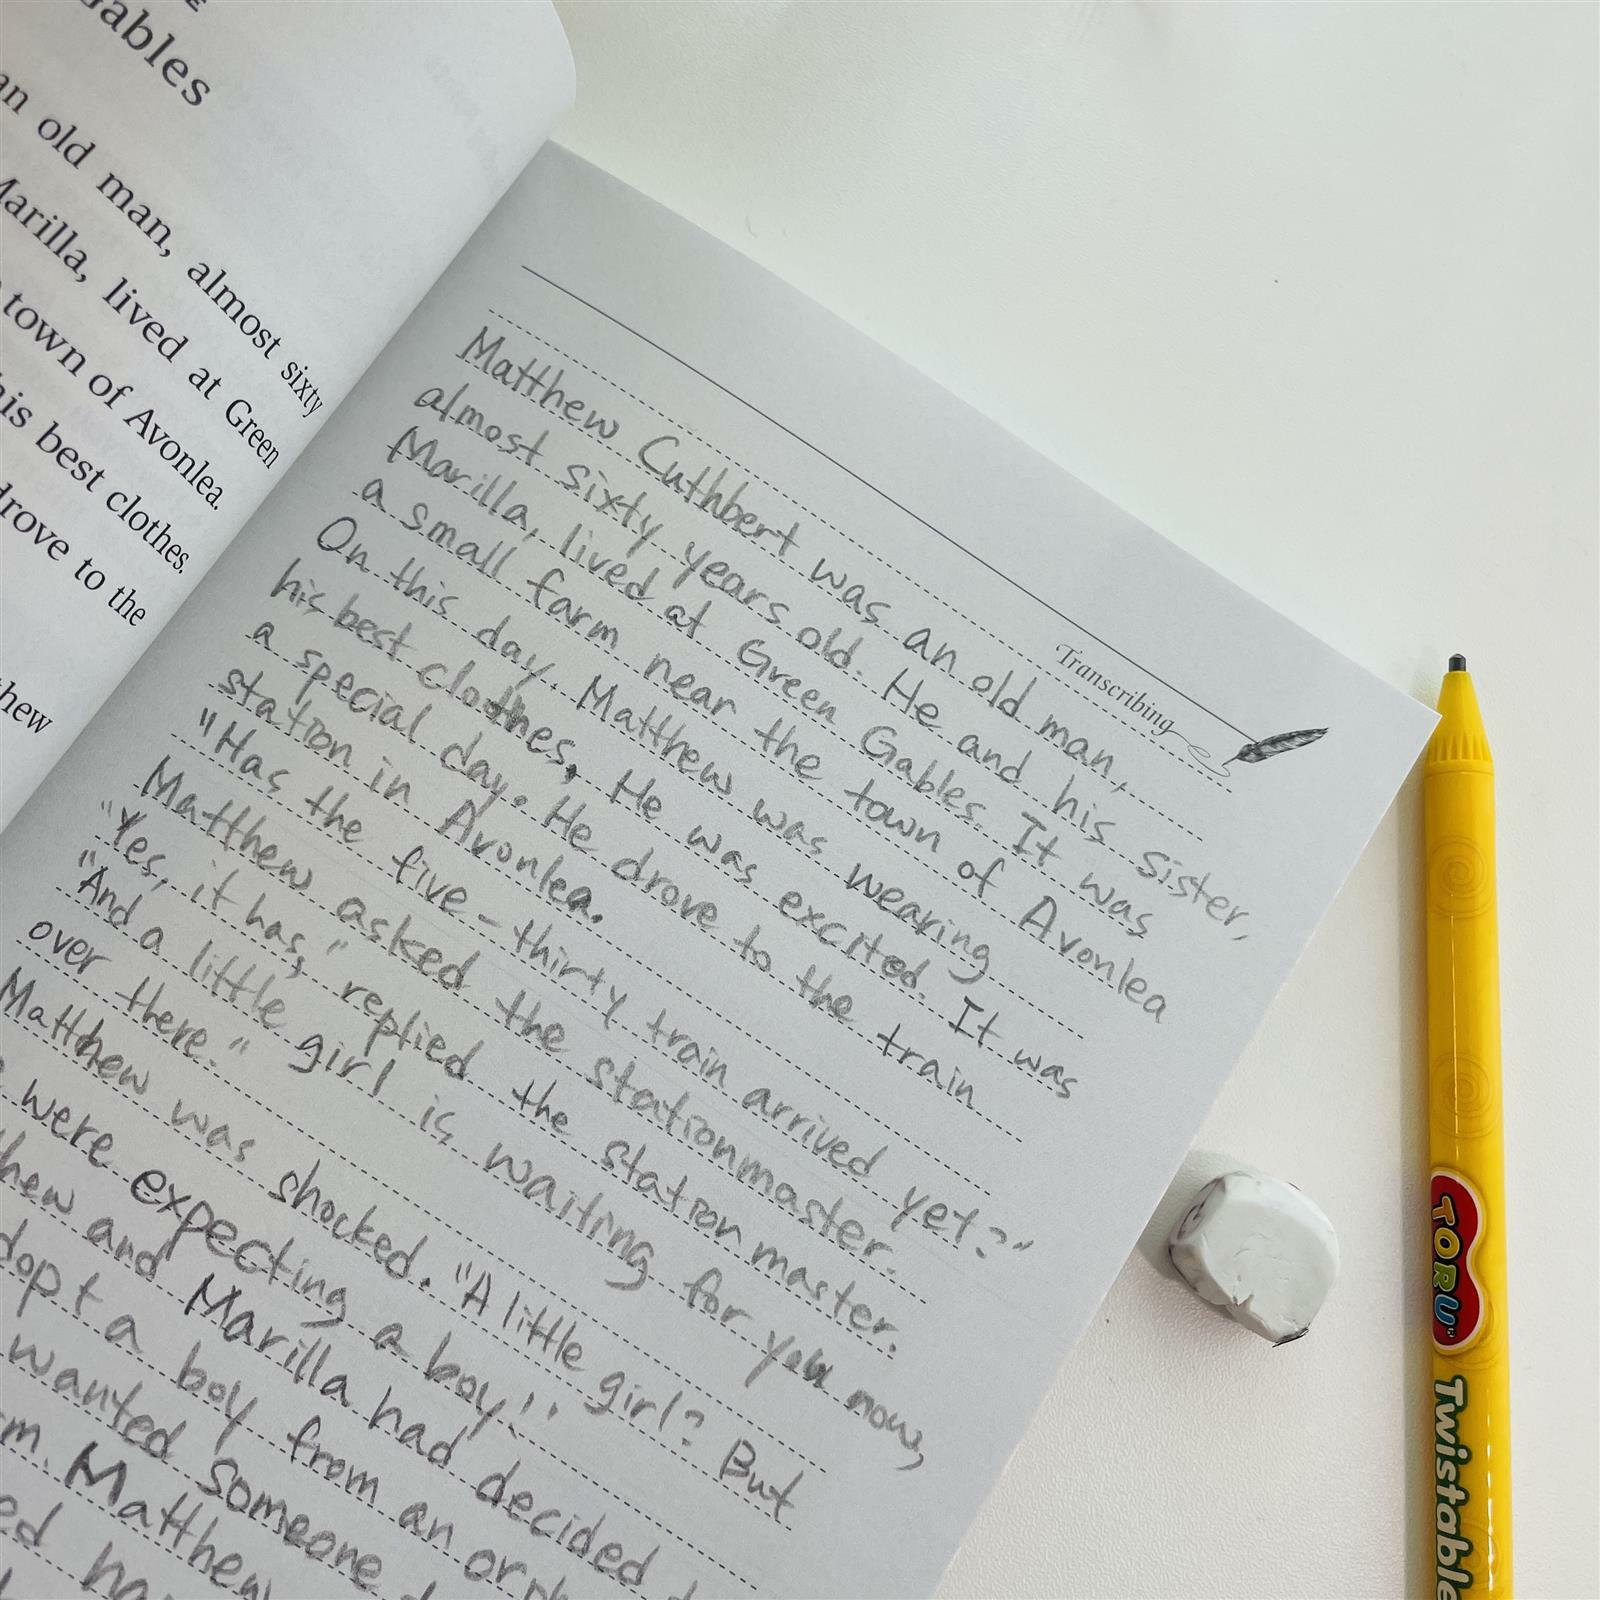 Gables
an old man, almost sixty
Marilla, lived at Green
town of Avonlea.
his best clothes.
drove to the
Transcribing
Matthew Cuthbert was an old man,
almost sixty years old. He and his sister,
Marilla, lived at Green Gables. It was
a small farm near the town of Avonlea
On this day, Matthew was wearing
his best clothes, He was excited. It was
a special day. He drove to the train
station in Avonlea.
"Has the five-thirty train arrived yet?"
Matthew asked the stationmaster.
"Yes, it has," replied the stationmaster.
"And a little girl is waiting for you now,
over there."
Matthew was shocked. "A little girl? But
were expecting a boy!"
and Marilla had decided
a boy from an
wanted someone
Matthew
TORU
Twistable